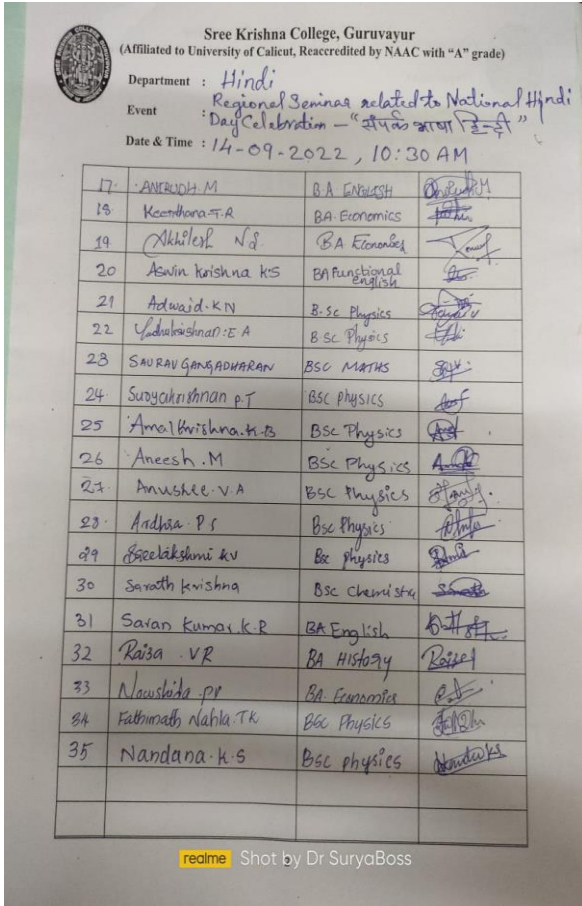 Sree Krishna College, Guruvayur
(Affiliated to University of Calicut, Reaccredited by NAAC with “A” grade)
Department : Hindi
Event : Regional Seminar related to National Hindi
Day Celebration – “संपर्क भाषा हिन्दी”
Date & Time : 14-09-2022, 10:30 AM
17. ANIRUDH.M B.A ENGLISH
18. Keerthana.T.R BA. Economics
19. Akhilesh N.S. BA Economics
20 Aswin Krishna K.S BA Functional
english
21 Adwaid.KN B.Sc Physics
22 Yadhukrishnan.E A B SC Physics
23 SAURAV GANGADHARAN BSC MATHS
24. Suryakrishnan P.T BSC physics
25 Amal Krishna.K.B BSC Physics
26 Aneesh.M BSC Physics
27. Anushee.V.A BSC Physics
28. Ardhra P S Bsc Physics
29 Sreelakshmi KV Bsc physics
30 Sarath Krishna Bsc chemistry
31 Saran Kumar.K.R BA English
32 Raisa .VR BA History
33 PP BA. Economics
34 Fathimath Nahla.TK BSC Physics
35 Nandana.K.S Bsc physics
realme Shot by Dr SuryaBoss